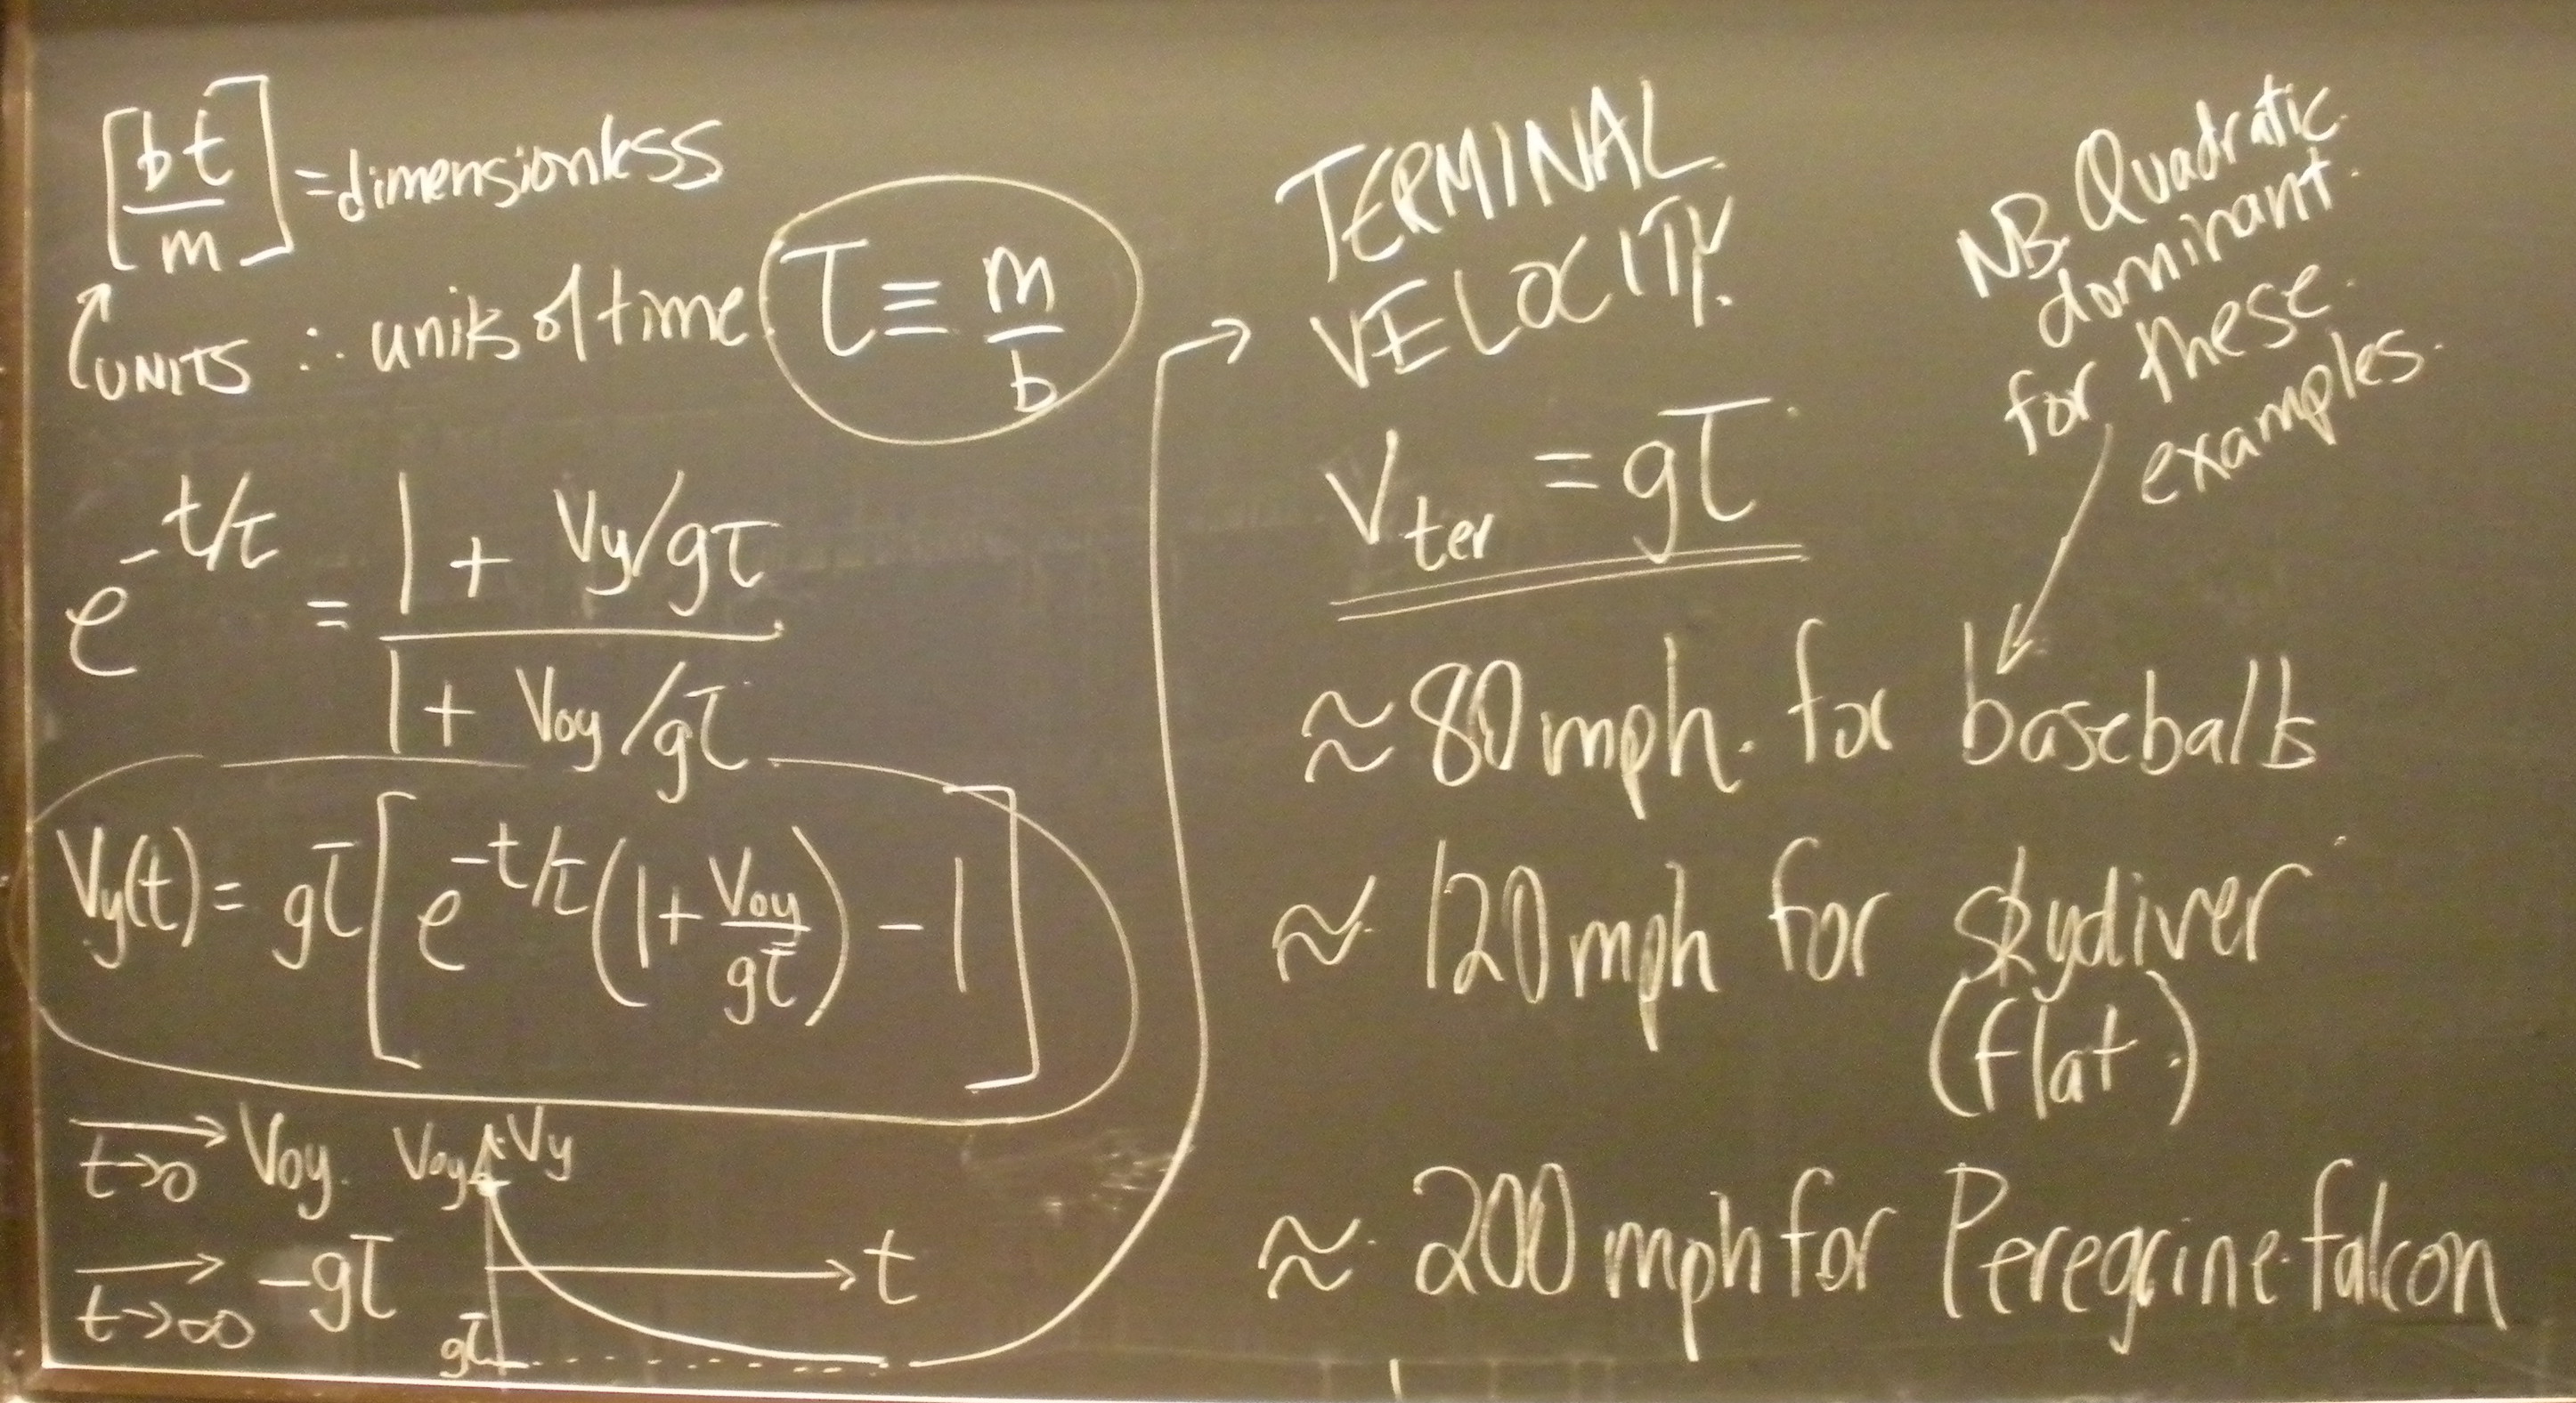 [bt/m] = dimensionless
UNITS ∴ units of time τ ≡ m/b
e^(-t/τ) = (1 + Vy/gτ) / (1 + Voy/gτ)
Vy(t) = gτ [ e^(-t/τ) (1 + Voy/gτ) - 1 ]
→ t→0 Voy.
→ t→∞ -gτ
Voy Vy
t
gτ
TERMINAL
VELOCITY.
Vter = gτ
NB. Quadratic
dominant
for these
examples.
≈ 80 mph. for baseballs
≈ 120 mph for skydiver
(flat.)
≈ 200 mph for Peregrine falcon